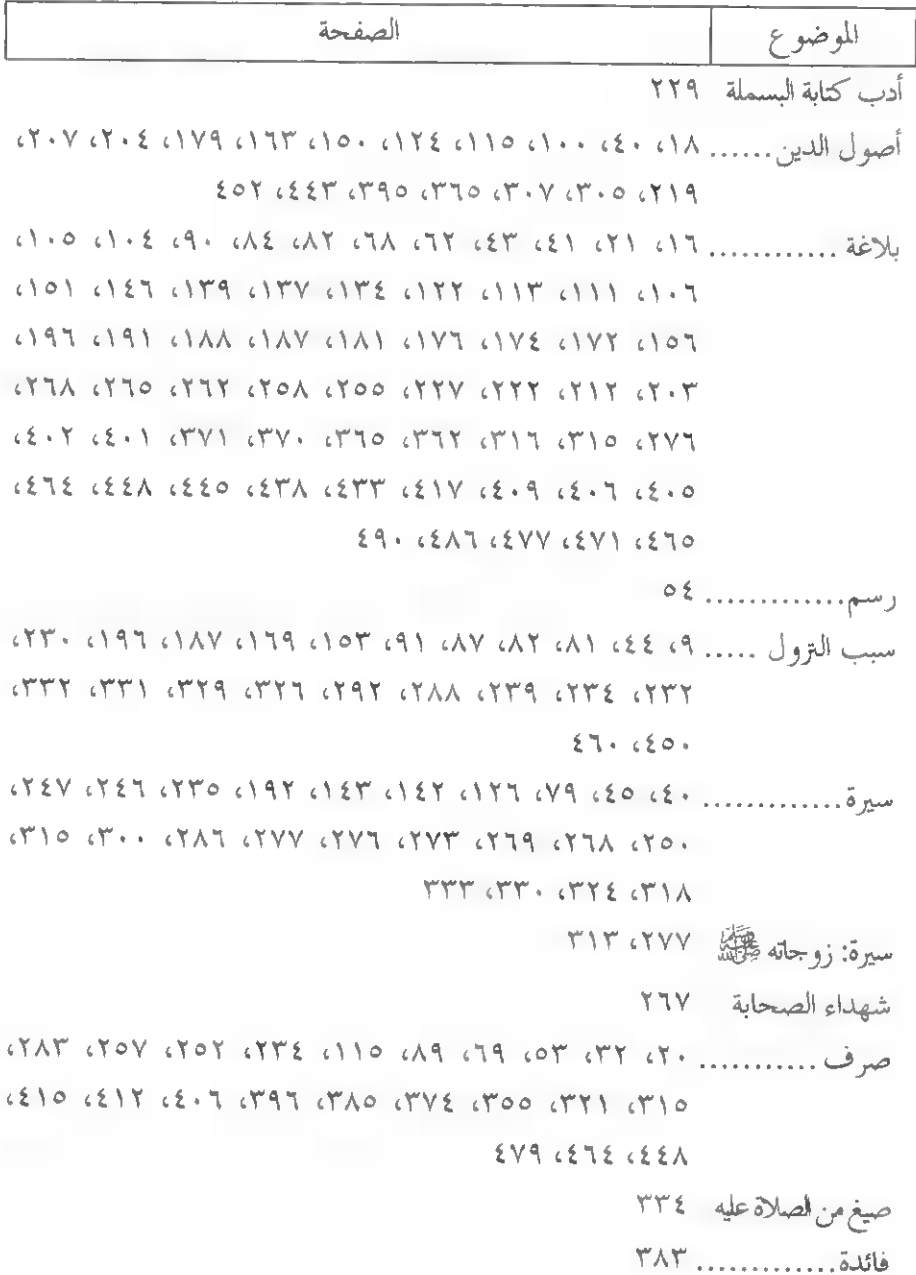 الموضوع الصفحة
أدب كتابة البسملة ٢٢٩
أصول الدين...... ١٨، ٤٠، ١٠٠، ١١٥، ١٢٤، ١٥٠، ١٦٣، ١٧٩، ٢٠٤، ٢٠٧،
٢١٩، ٣٠٥، ٣٠٧، ٣٦٥، ٣٩٥، ٤٤٣، ٤٥٢
بلاغة ............ ١٦، ٢١، ٤١، ٤٣، ٦٢، ٦٨، ٨٢، ٨٤، ٩٠، ١٠٤، ١٠٥،
١٠٦، ١١١، ١١٣، ١٢٢، ١٣٤، ١٣٧، ١٣٩، ١٤٦، ١٥١،
١٥٦، ١٧٢، ١٧٤، ١٧٦، ١٨١، ١٨٧، ١٨٨، ١٩١، ١٩٦،
٢٠٣، ٢١٢، ٢٢٢، ٢٢٧، ٢٥٥، ٢٥٨، ٢٦٢، ٢٦٥، ٢٦٨،
٢٧٦، ٣١٥، ٣١٦، ٣٦٢، ٣٦٥، ٣٧٠، ٣٧١، ٤٠١، ٤٠٢،
٤٠٥، ٤٠٦، ٤٠٩، ٤١٧، ٤٣٣، ٤٣٨، ٤٤٥، ٤٤٨، ٤٦٤،
٤٦٥، ٤٧١، ٤٧٧، ٤٨٦، ٤٩٠
رسم............. ٥٤
سبب النزول ..... ٩، ٤٤، ٨١، ٨٢، ٨٧، ٩١، ١٥٣، ١٦٩، ١٨٧، ١٩٦، ٢٣٠،
٢٣٢، ٢٣٤، ٢٣٩، ٢٨٨، ٢٩٢، ٣٢٦، ٣٢٩، ٣٣١، ٣٣٢،
٤٥٠، ٤٦٠
سيرة............. ٤٠، ٤٥، ٧٩، ١٢٦، ١٤٢، ١٤٣، ١٩٢، ٢٣٥، ٢٤٦، ٢٤٧،
٢٥٠، ٢٦٨، ٢٦٩، ٢٧٣، ٢٧٦، ٢٧٧، ٢٨٦، ٣٠٠، ٣١٥،
٣١٨، ٣٢٤، ٣٣٠، ٣٣٣
سيرة: زوجاته ﷺ ٢٧٧، ٣١٣
شهداء الصحابة ٢٦٧
صرف ........... ٢٠، ٣٢، ٥٣، ٦٩، ٨٩، ١١٥، ٢٣٤، ٢٥٢، ٢٥٧، ٢٨٣،
٣١٥، ٣٢١، ٣٥٥، ٣٧٤، ٣٨٥، ٣٩٦، ٤٠٦، ٤١٢، ٤١٥،
٤٤٨، ٤٦٤، ٤٧٩
صيغ من الصلاة عليه ٣٣٤
فائدة............. ٣٨٣